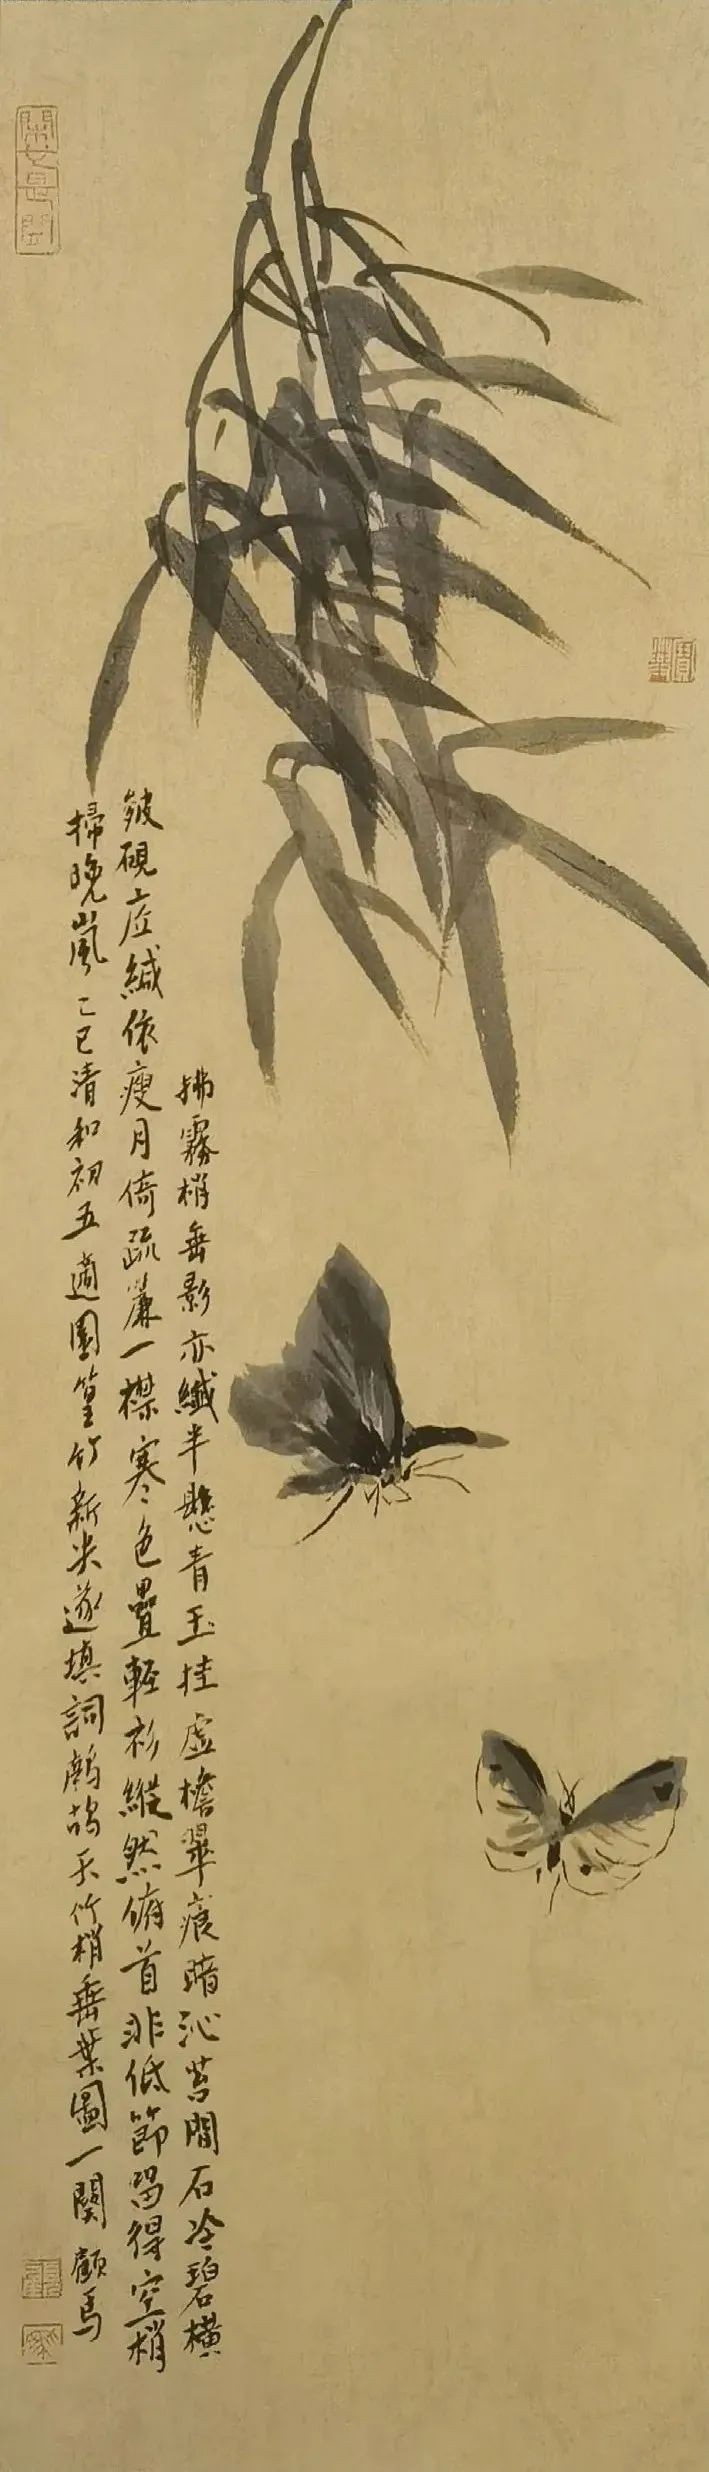 拂霧梢垂影亦纖半懸青玉挂虛檐翠痕暗沁苔間石冷碧橫
皴硯底緘依瘦月倚疏簾一襟寒色疊輕衫縱然俯首非低節留得空梢
掃晚嵐乙巳清和初五適園篁竹新遂填詞鷓鴣天竹梢垂葉圖一闋顧馬